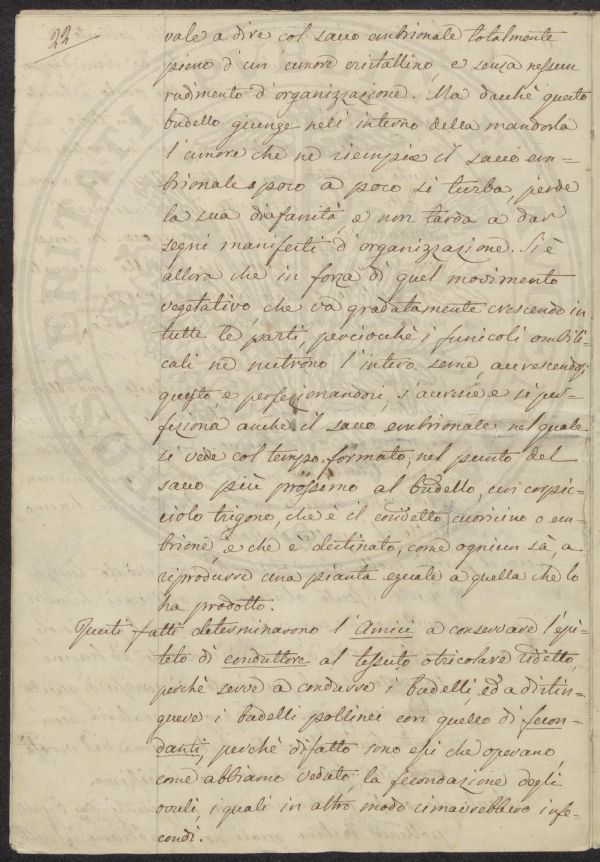 22
vale a dire col sacco embrionale totalmente
pieno d'un umore cristallino, e senza nessun
rudimento d'organizzazione. Ma dacchè questo
budello giunge nell'interno della mandorla
l'umore che ne riempie il sacco em=
brionale a poco a poco si turba, perde
la sua diafanità, e non tarda a dar
segni manifesti d'organizzazione. Si è
allora che in forza di quel movimento
vegetativo che va gradatamente crescendo in
tutte le parti, perciocchè i funicoli ombili=
cali ne nutrono l'intero seme, accrescendosi
questo, e perfezionandosi, s'accresce e si per=
feziona anche il sacco embrionale nel quale
si vede col tempo formato, nel punto del
sacco più prossimo al budello, un corpic=
ciolo trigono, che è il cordetto cuoricino o em=
brione, e che è destinato, come ognun sà, a
riprodurre una pianta eguale a quella che lo
ha prodotto.
Questi fatti determinarono l'Amici a conservare l'epi=
teto di conduttore al tessuto otricolare ridetto,
perchè serve a condurre i budelli, ed a distin=
guere i budelli pollinei con quello di fecon=
danti, perchè difatto sono essi che operano,
come abbiamo veduto, la fecondazione degli
ovuli, i quali in altro modo rimarrebbero infe=
condi.